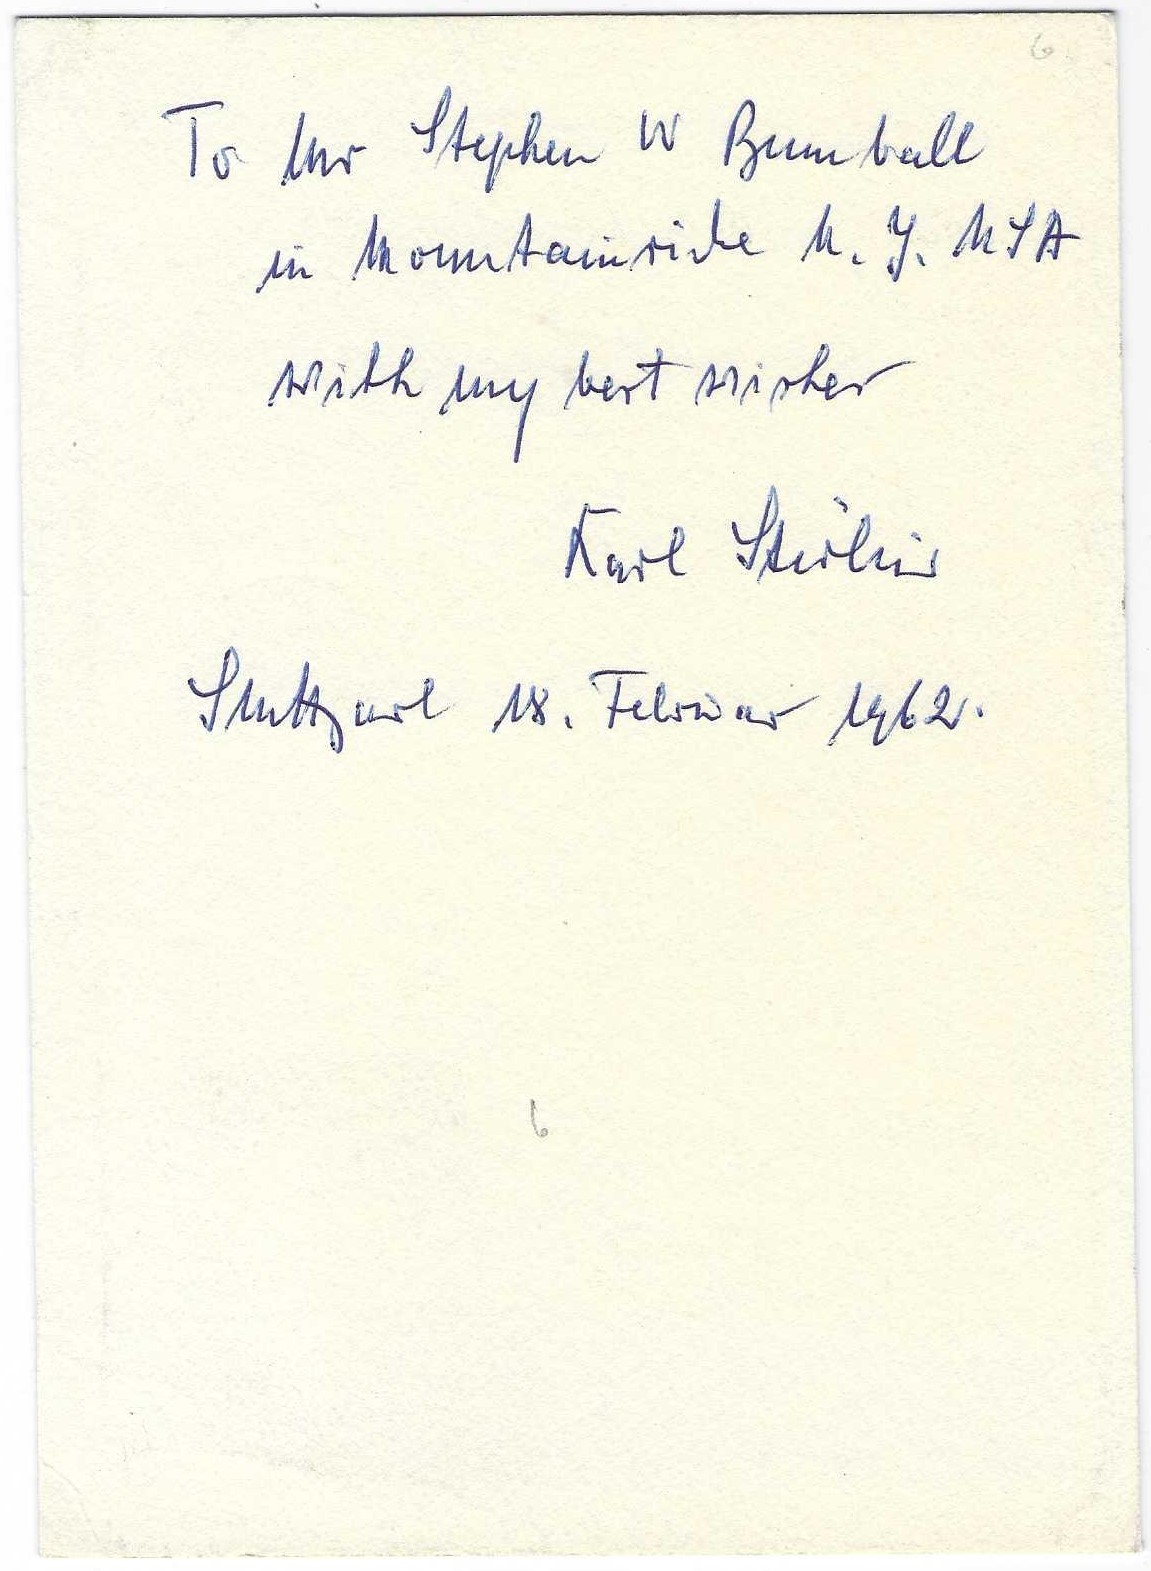 6
To Mr Stephen W Bumball
in Mountainside N. J. USA
with my best wishes
Karl Ströhlin
Stuttgart 18. Februar 1962.
6